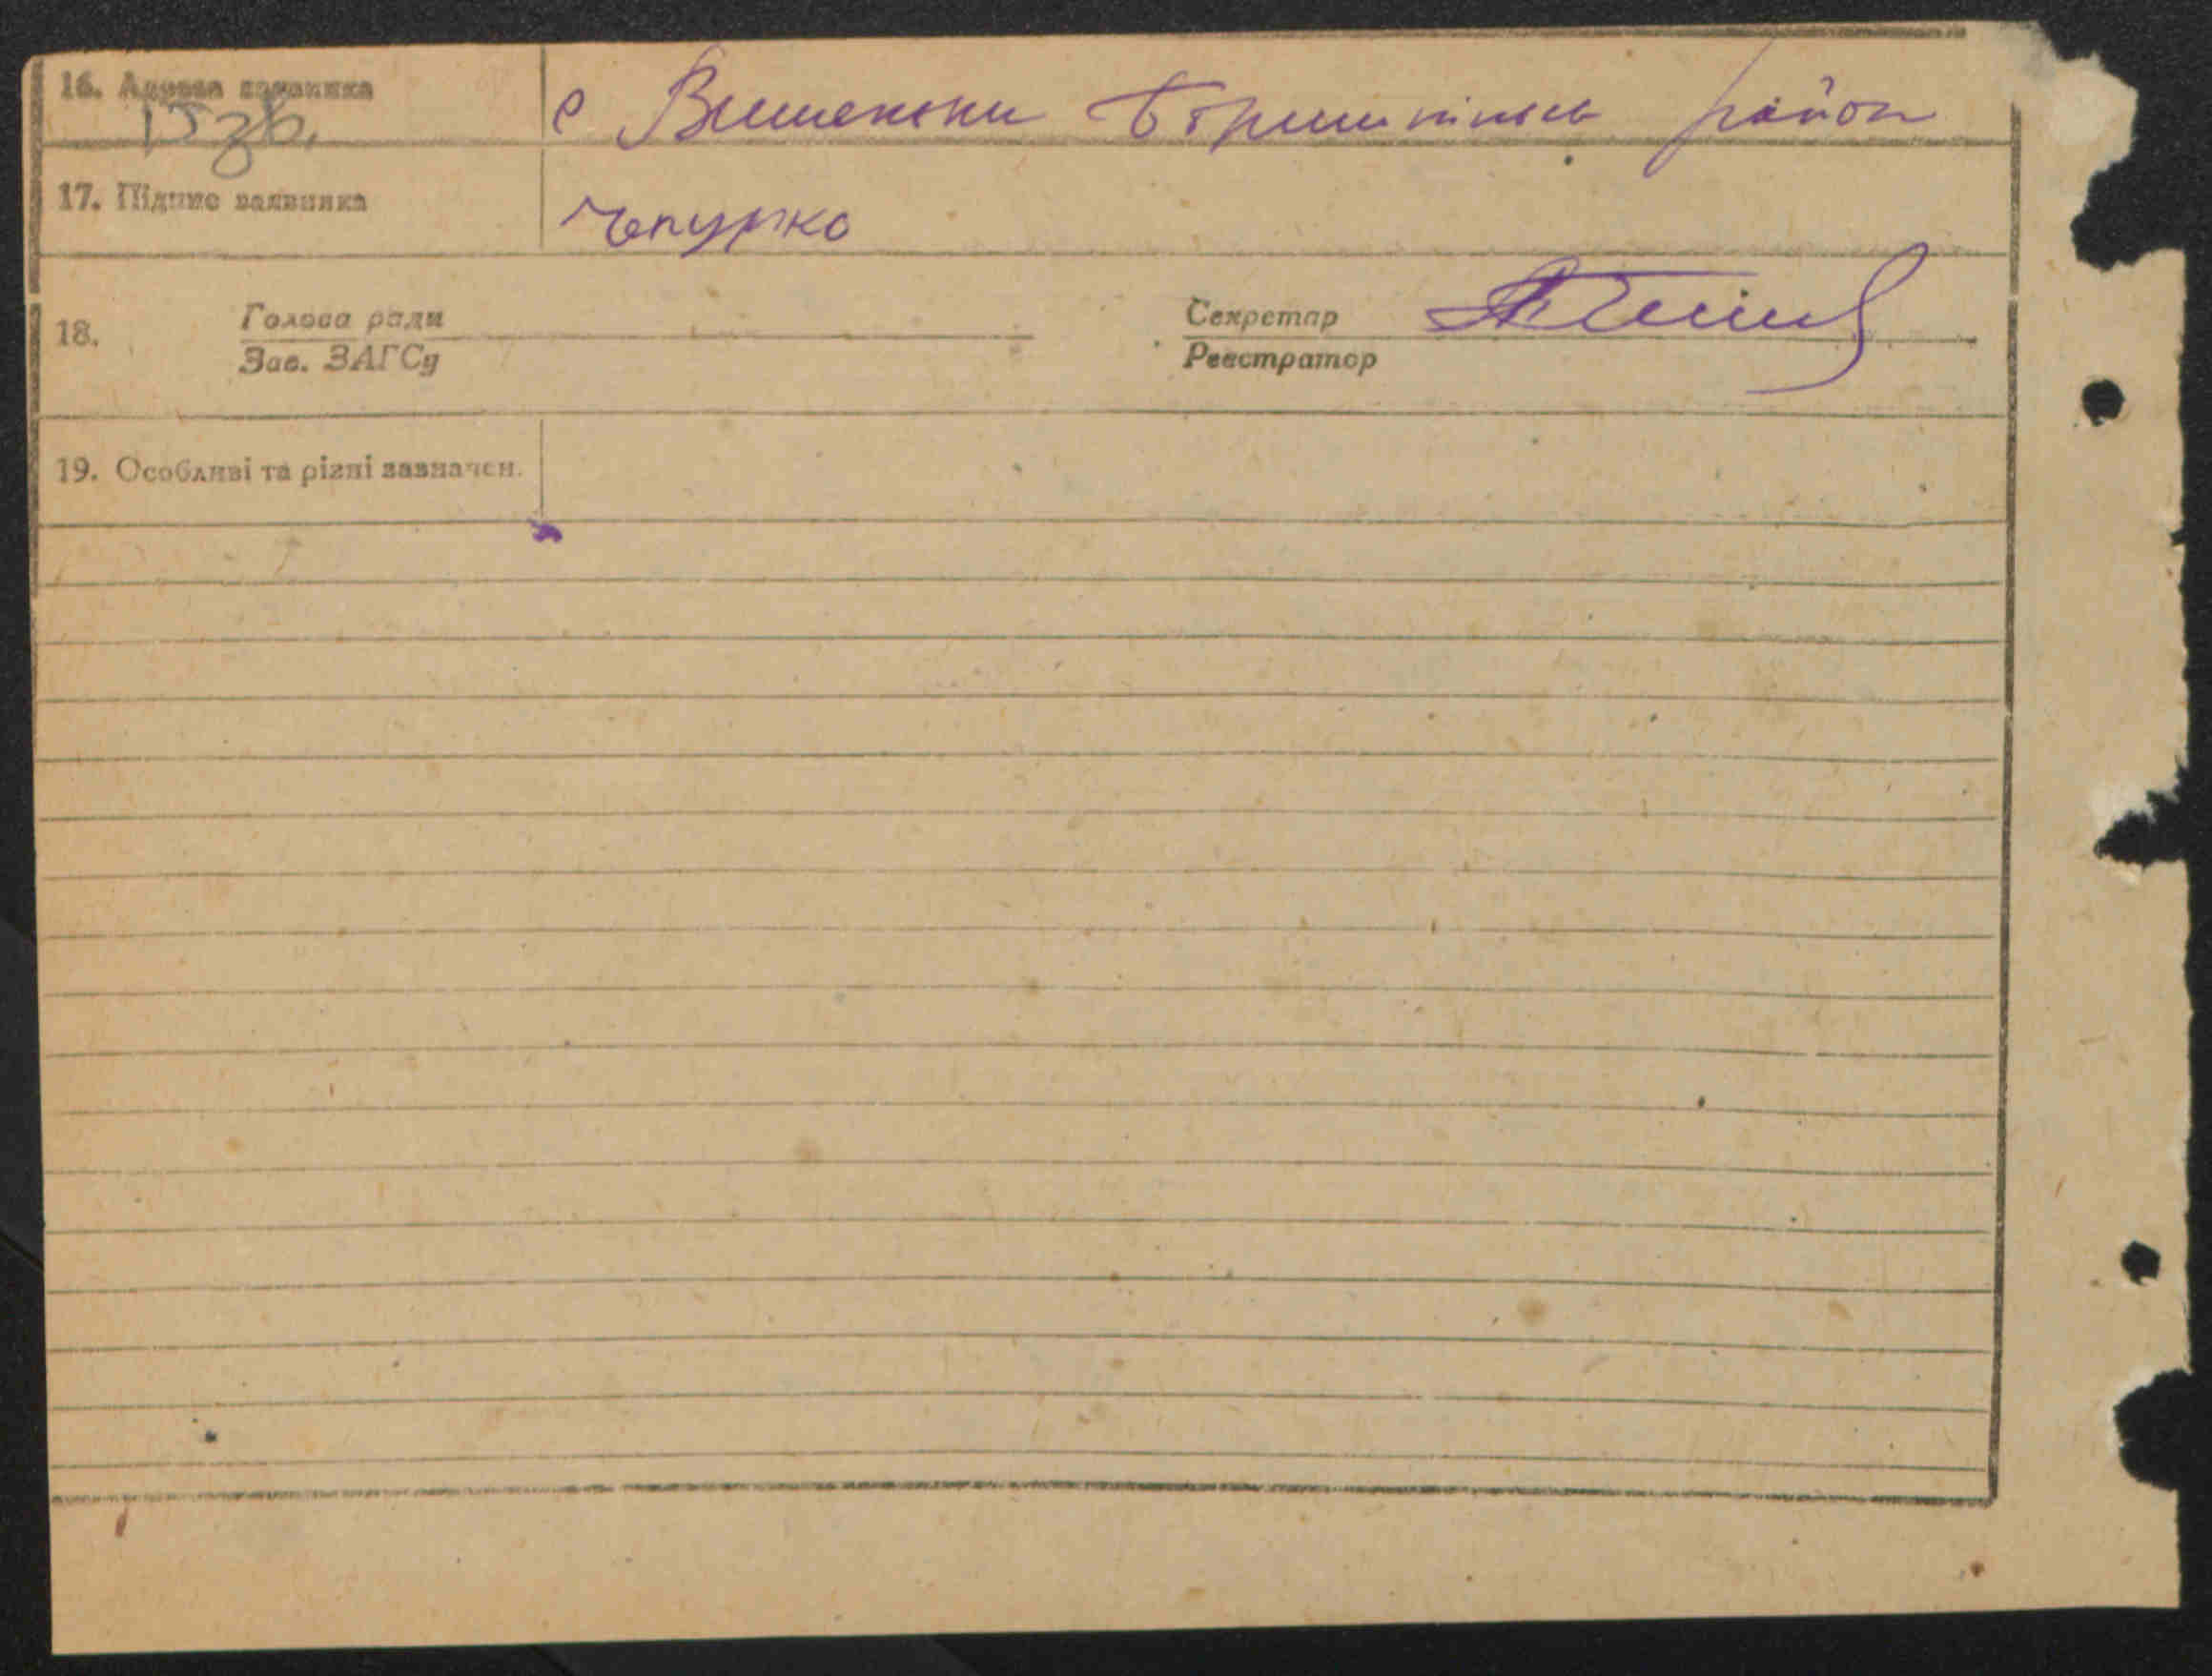 16. Адреса заявника
15 зв.
с Вишеньки Бориспільськ район
17. Підпис заявника
Чепурко
18. Голова ради
Зав. ЗАГСу
Секретар
Реєстратор
19. Особливі та різні зазначен.